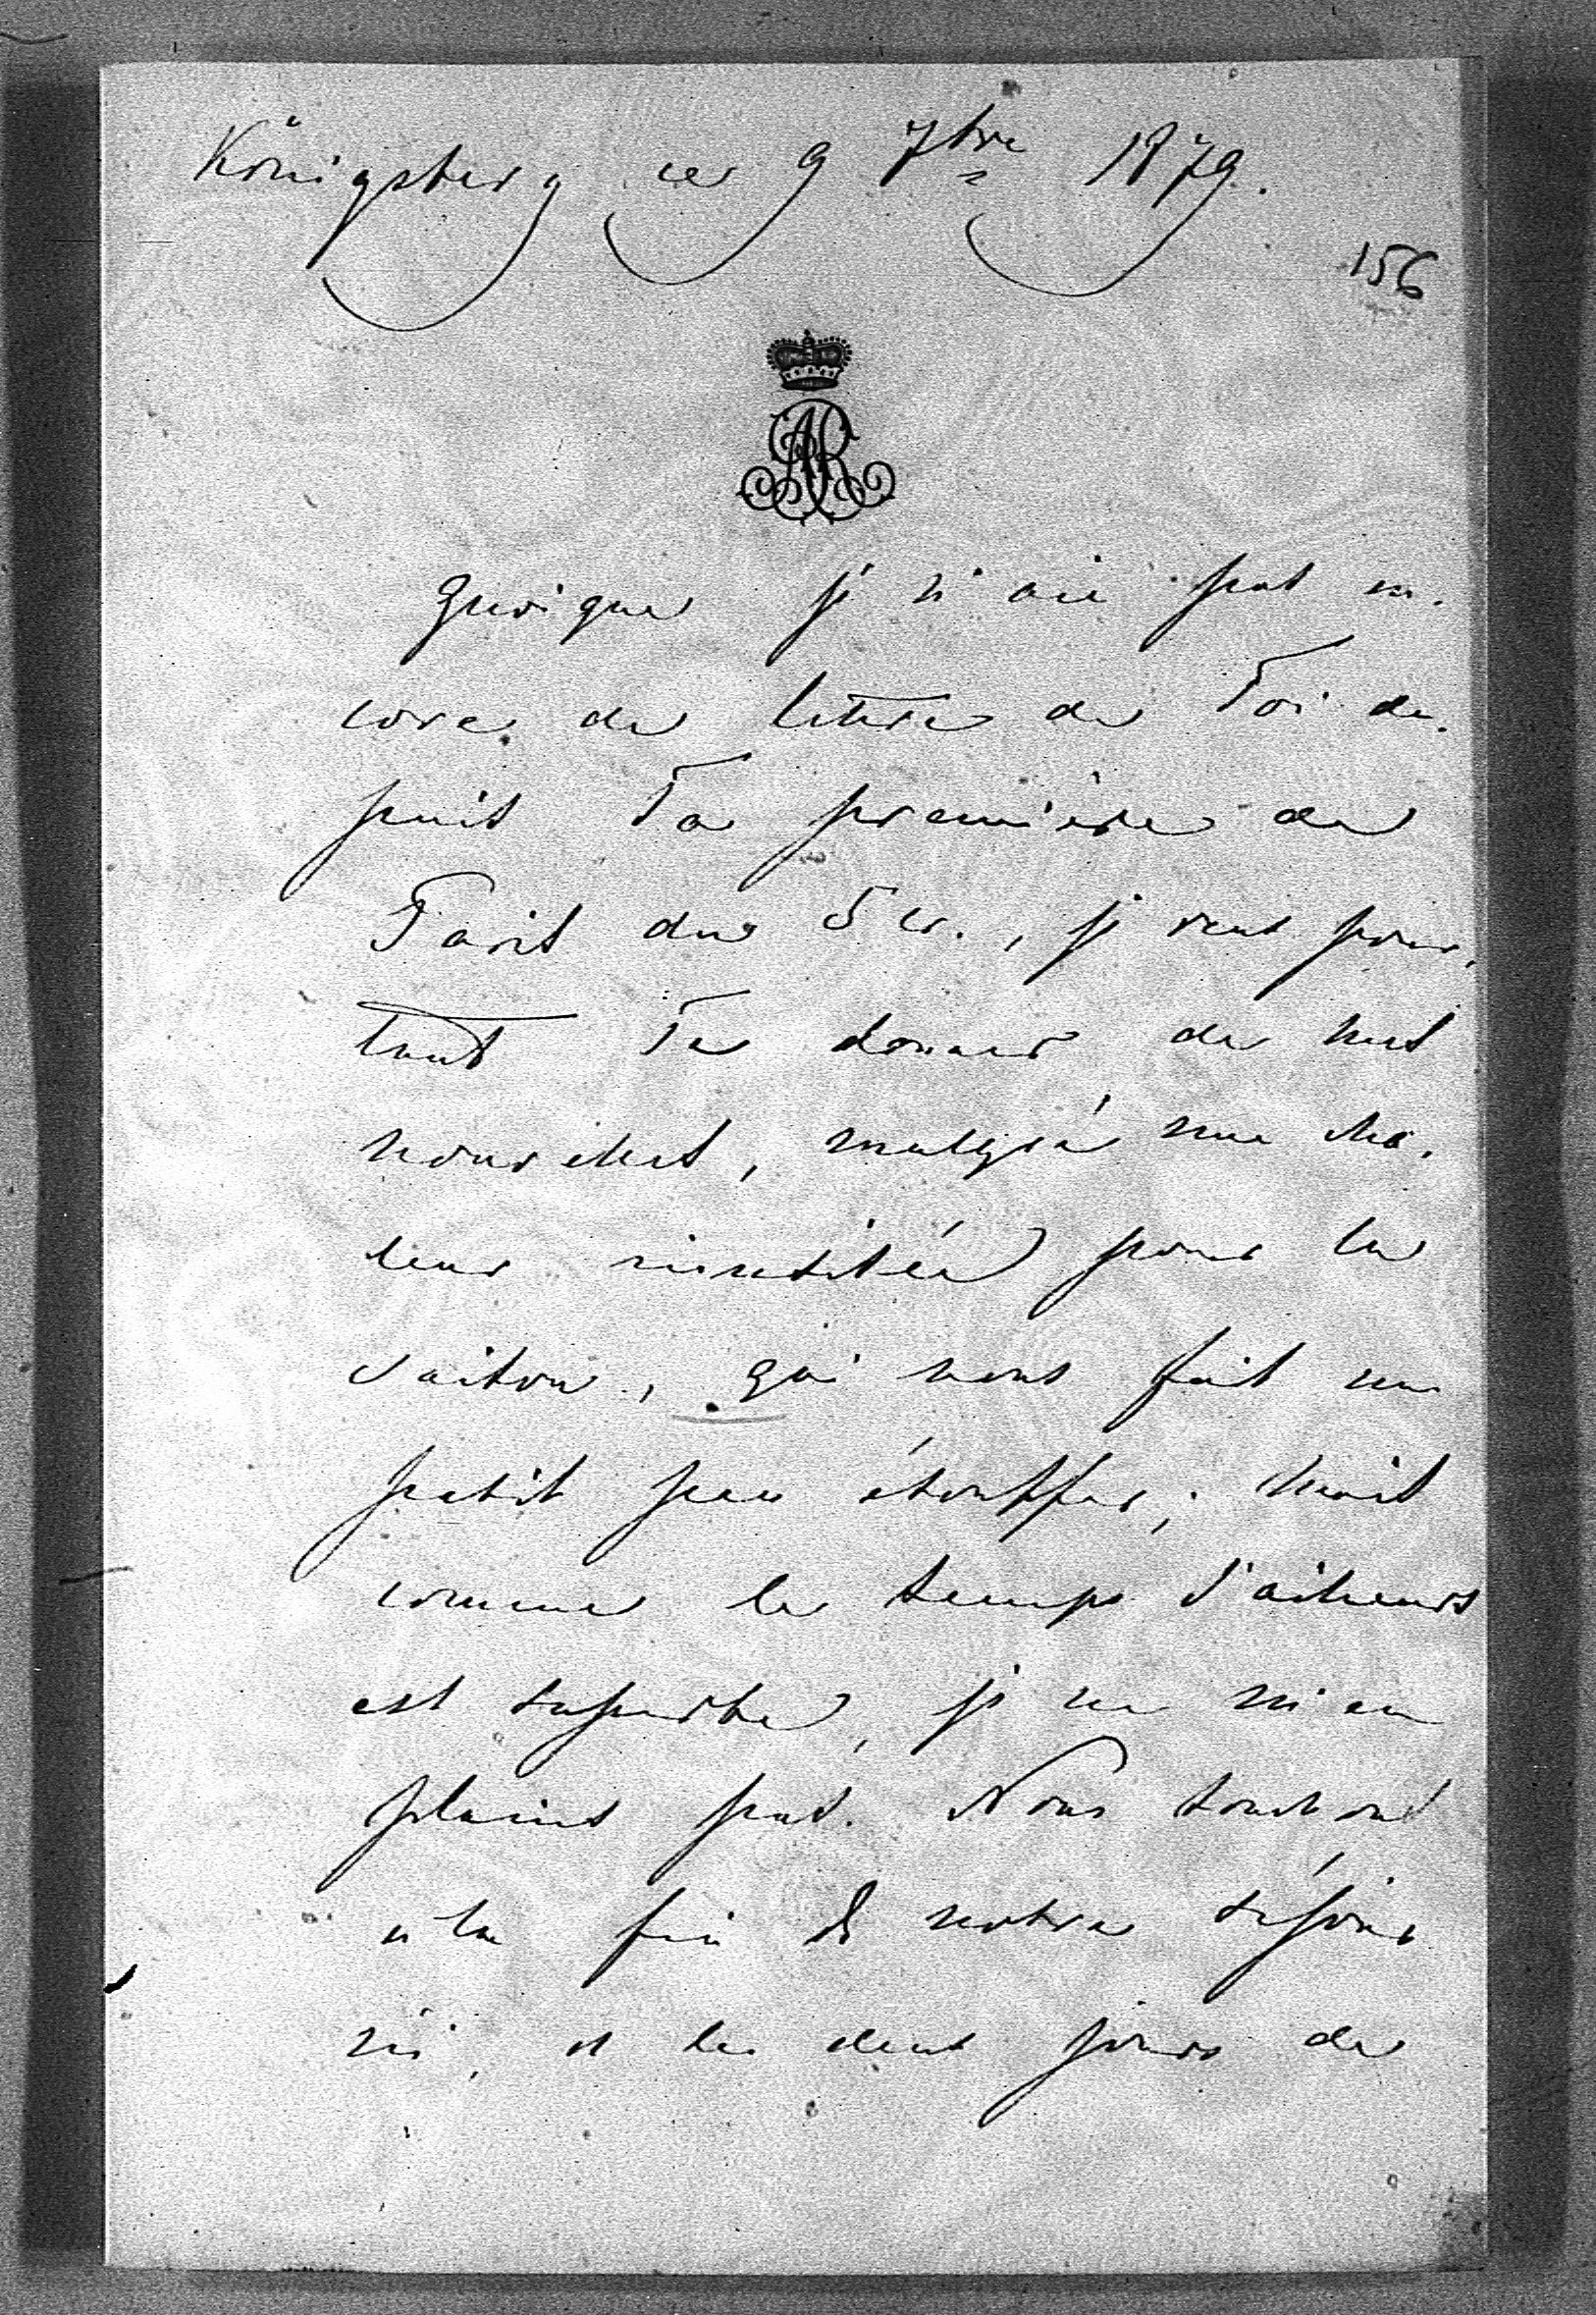 Königsberg ce 9 7bre 1879.
156
AR
Quoique je n'aie pas en-
core de lettre de Toi de-
puis Ta première de
Paris du 5 cr., je veux pour-
tant Te donner de mes
nouvelles, malgré une cha-
leur inusitée pour la
saison, qui nous fait un
petit peu étouffer; mais
comme le temps d'ailleurs
est superbe, je ne m'en
plains pas. Nous touchons
à la fin de notre séjour
ici, et les deux jours de